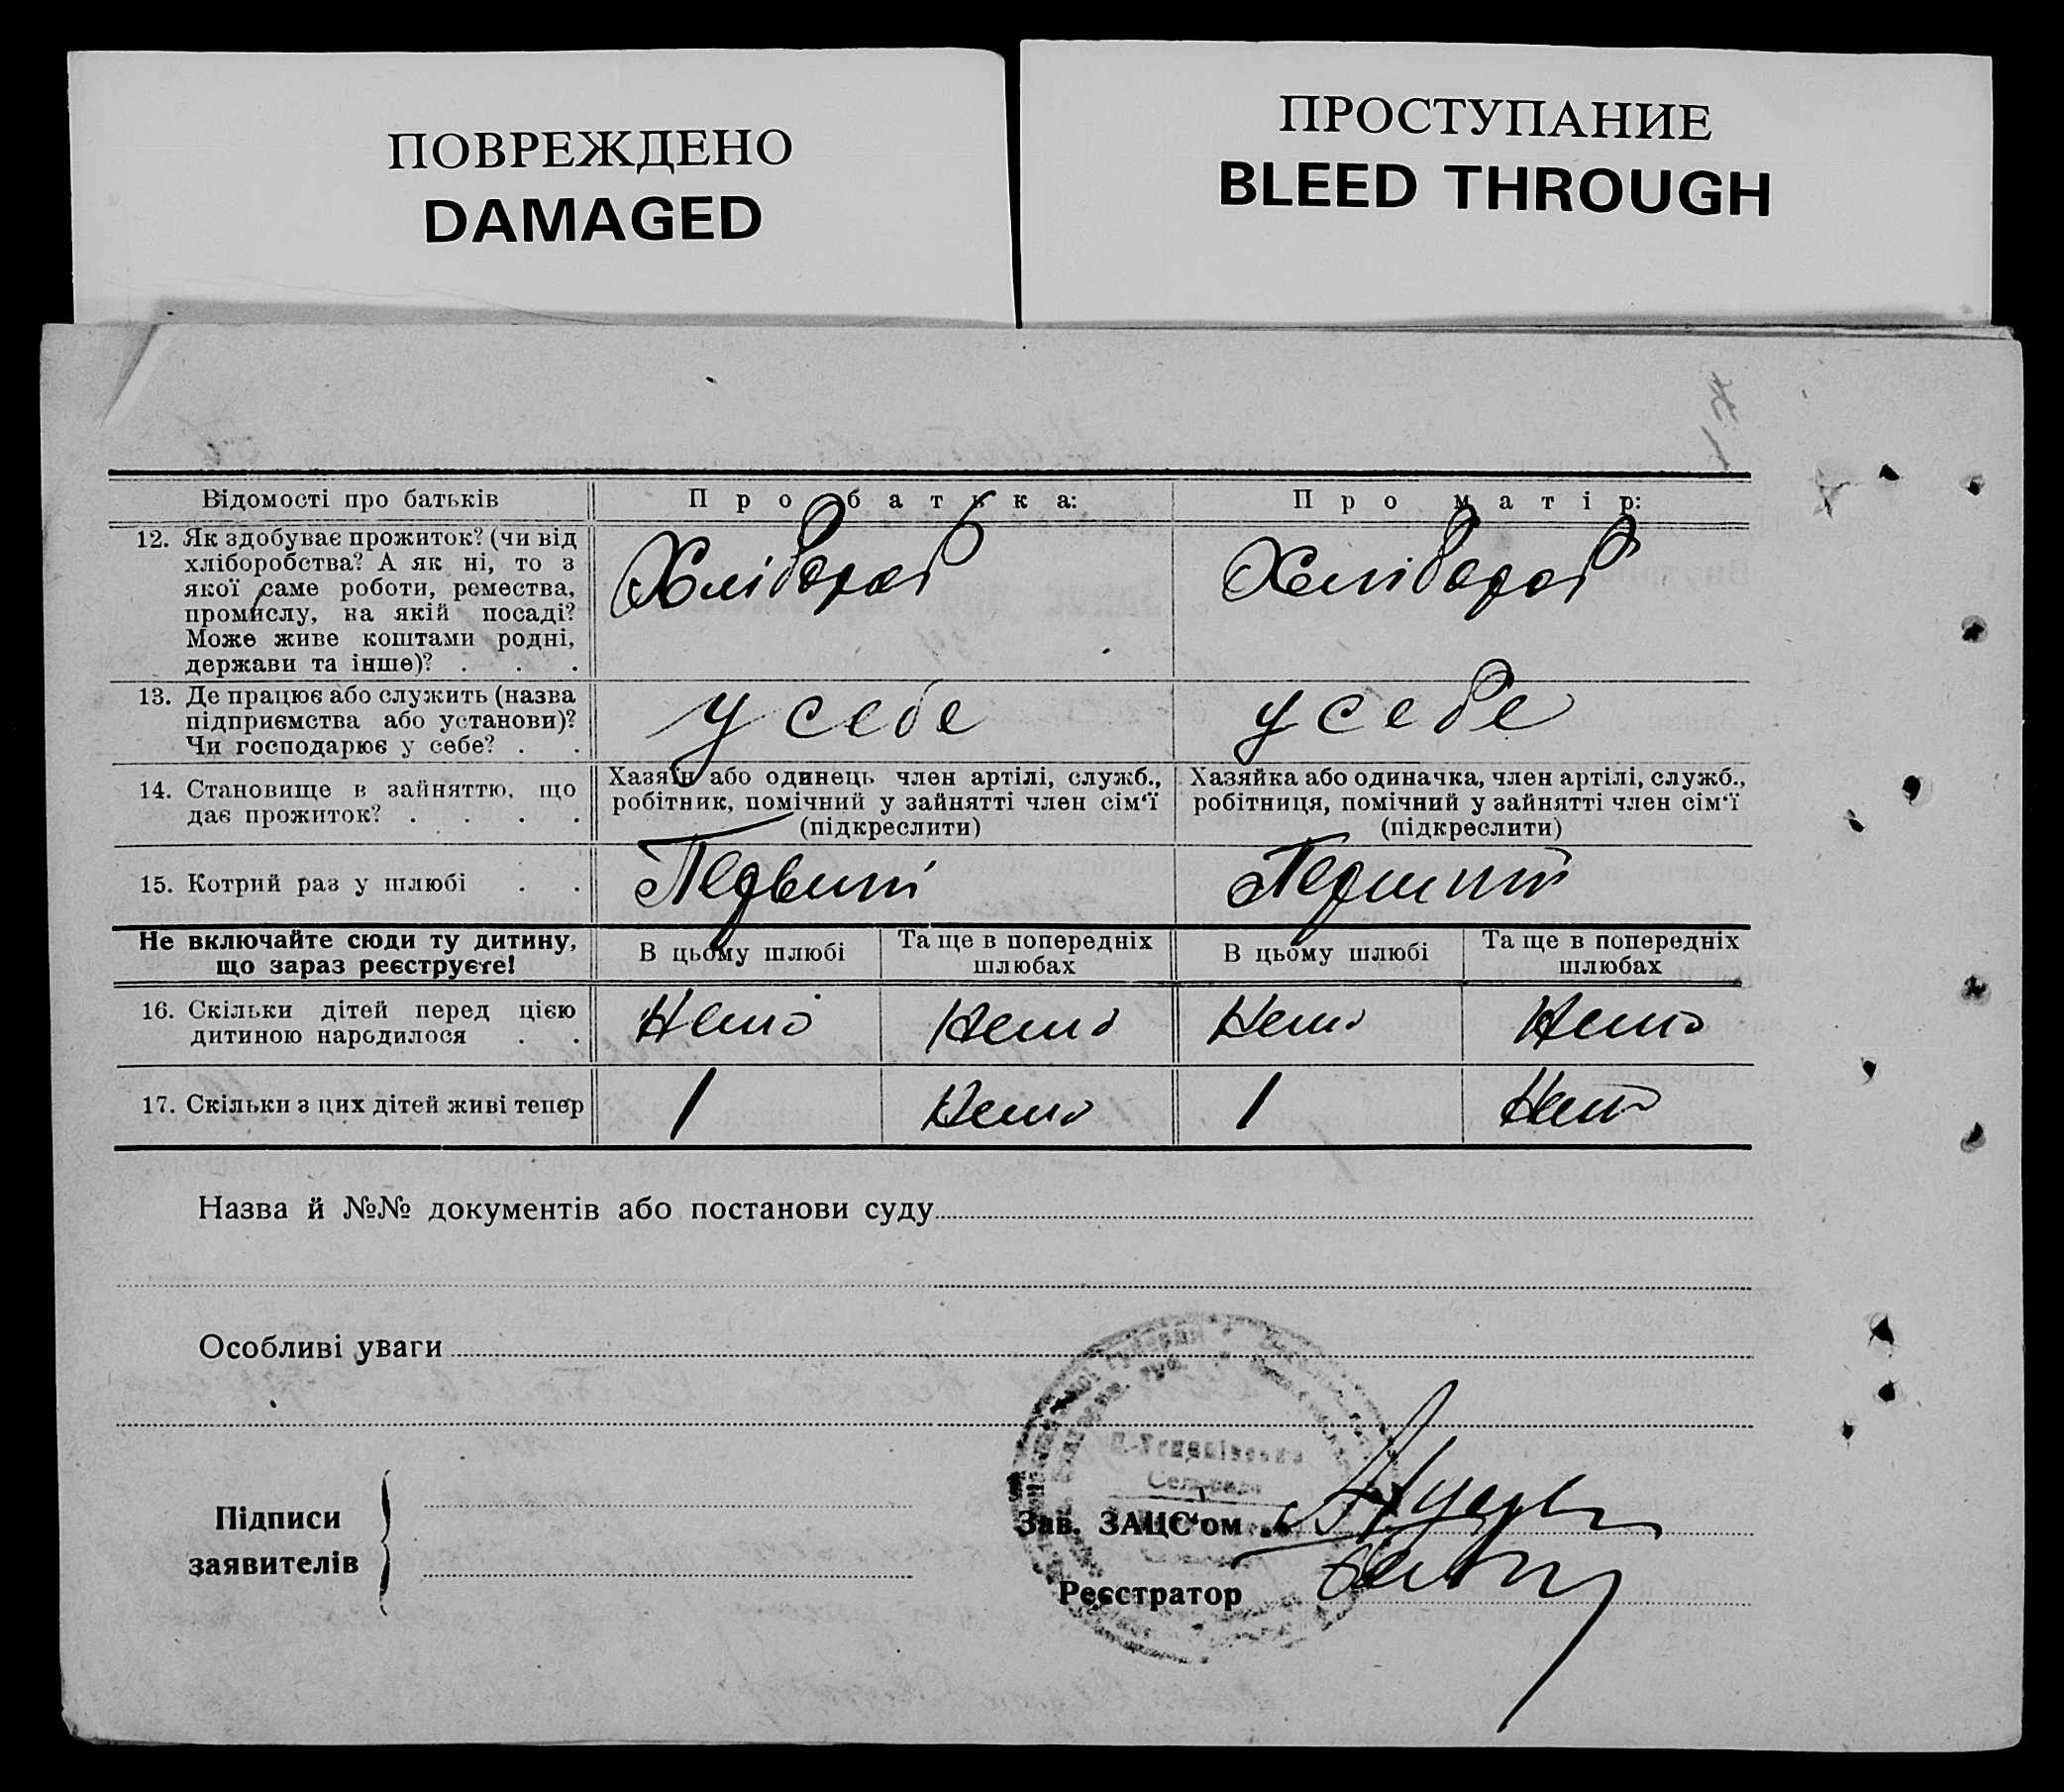 ПОВРЕЖДЕНО
DAMAGED
ПРОСТУПАНИЕ
BLEED THROUGH
Відомості про батьків
Про батька:
Про матір:
12. Як здобуває прожиток? (чи від
хліборобства? А як ні, то з
якої саме роботи, ремества,
промислу, на якій посаді?
Може живе коштами родні,
держави та інше)? . . .
Хлібороб
Хлібороб
13. Де працює або служить (назва
підприємства або установи)?
Чи господарює у себе? . .
у себе
у себе
14. Становище в зайняттю, що
дає прожиток? . . . .
Хазяїн або одинець член артілі, служб.,
робітник, помічний у зайнятті член сім'ї
(підкреслити)
Хазяйка або одиначка, член артілі, служб.,
робітниця, помічний у зайнятті член сім'ї
(підкреслити)
15. Котрий раз у шлюбі . .
Первий
Перший
Не включайте сюди ту дитину,
що зараз реєструєте!
В цьому шлюбі
Та ще в попередніх
шлюбах
В цьому шлюбі
Та ще в попередніх
шлюбах
16. Скільки дітей перед цією
дитиною народилося . .
Нема
Нема
Нема
Нема
17. Скільки з цих дітей живі тепер
1
Нема
1
Нема
Назва й №№ документів або постанови суду
Особливі уваги
Підписи
заявителів
Зав. ЗАЦС'ом
Реєстратор